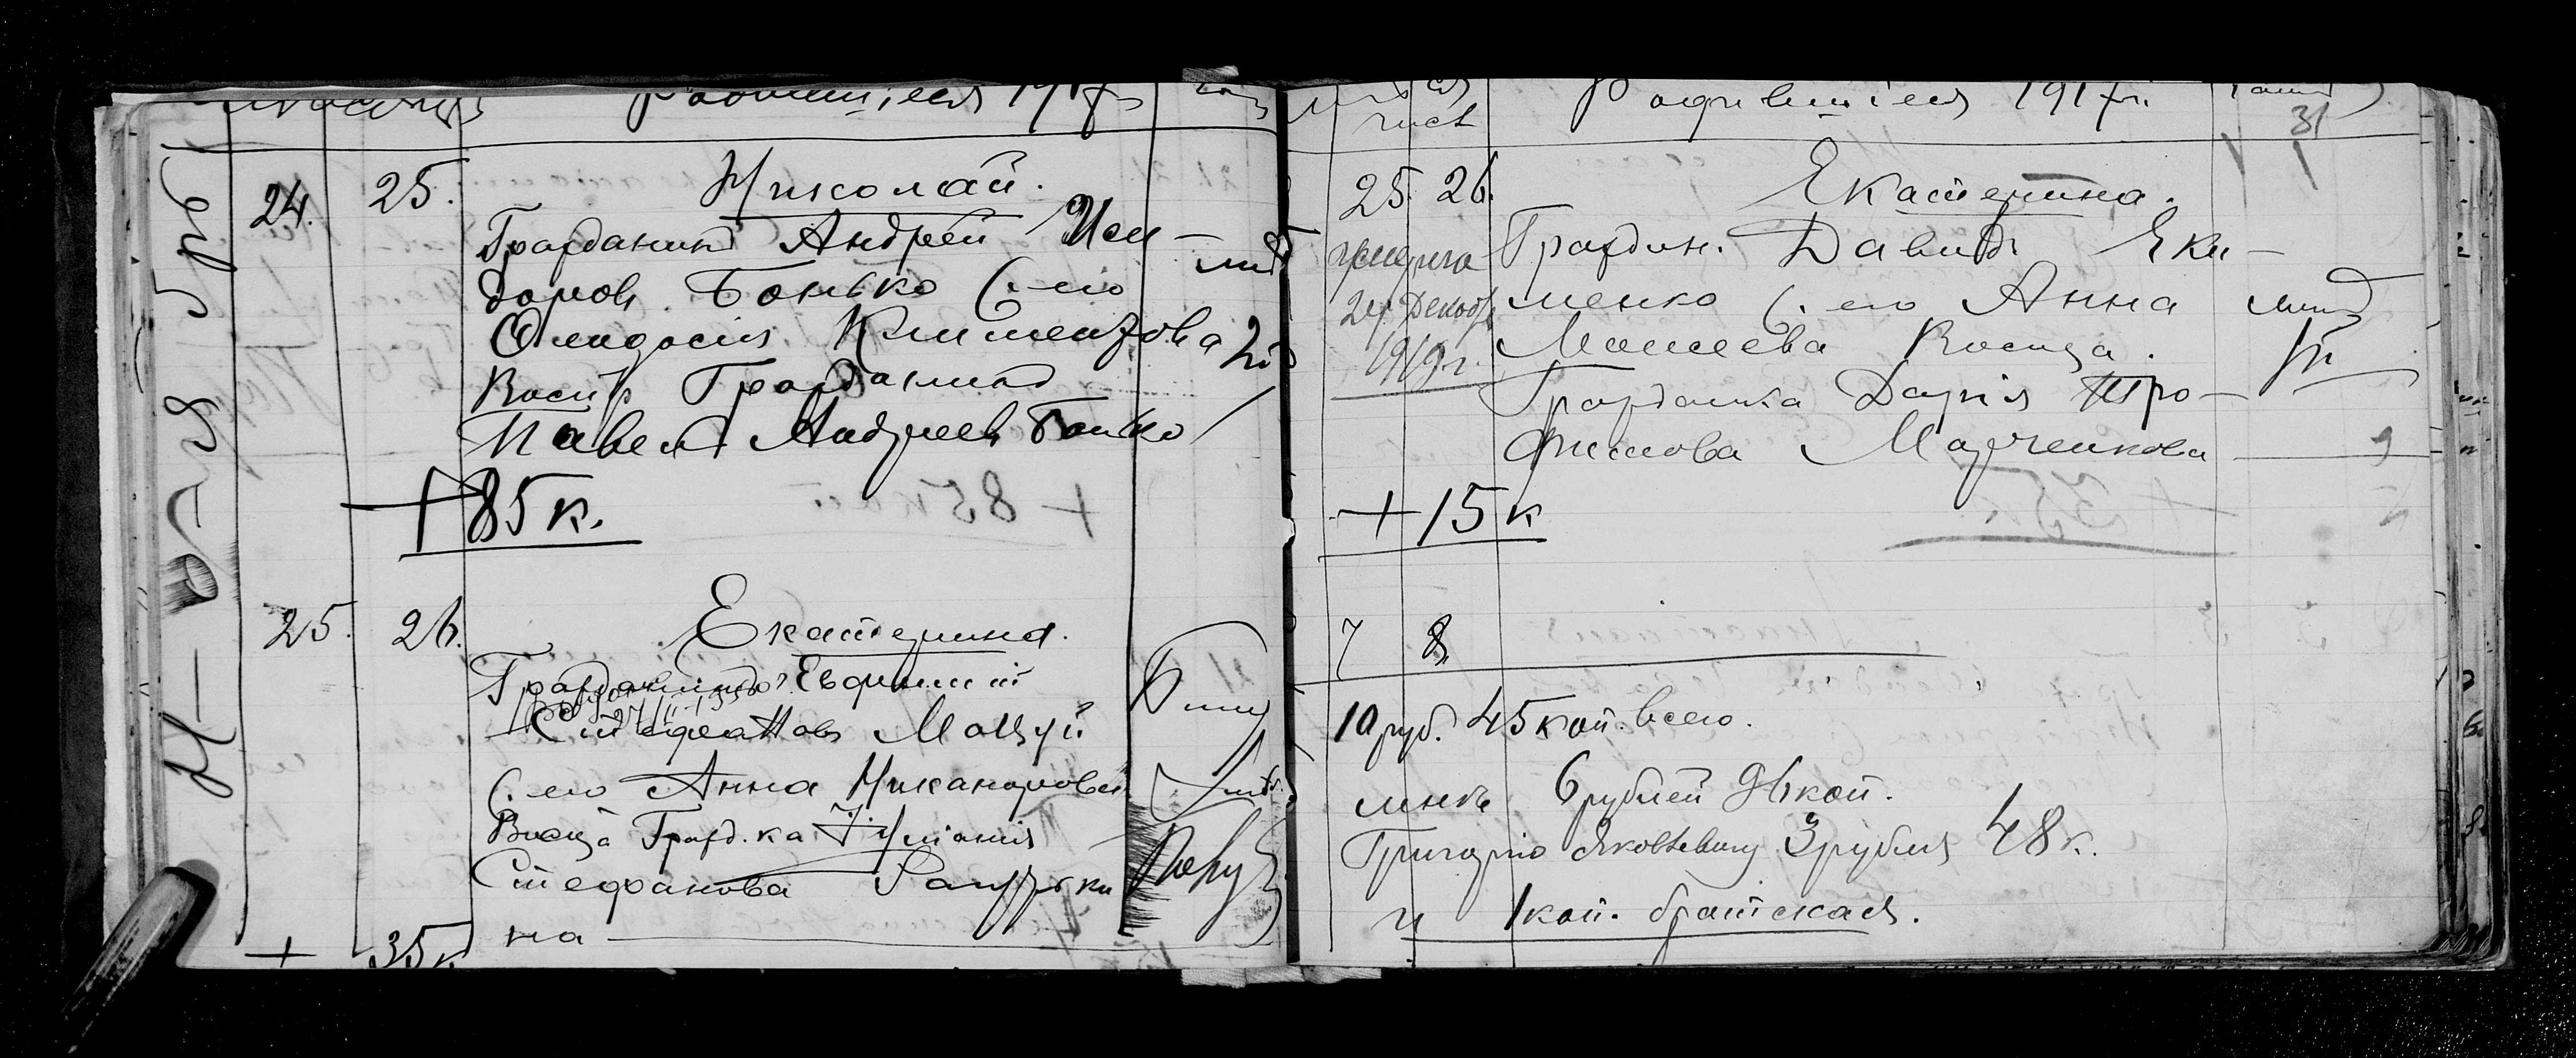 Родившіеся 1917
Ноября
24. 25. Николай.
Гражданинъ Андрей Иси-
доровъ Бонько (. его
Феодосія Климентова
Восп. Гражданинъ
Павелъ Андреевъ Бонько
+ 85 к.
25. 26. Екатерина.
Гражданинъ Евфимій
Стефановъ Мацуй
(. его Анна Никанорова
Воспр. Гражд. ка Іуліанія
Стефанова
на
+ 35 к
числ Родившіеся 1917 г.
31
25. 26. Екатерина.
Граждан. Давидъ Еки-
24 Декаб. менко (. его Анна
1919 г. Моисеева Воспр.
Гражданка Дарія Тро-
фимова Марченкова
+ 15 к
7 8
10 руб. 45 коп. всего.
мнѣ 6 рублей 96 коп.
Григорію Яковлевичу 3 рубля 48 к.
и 1 коп. братская.